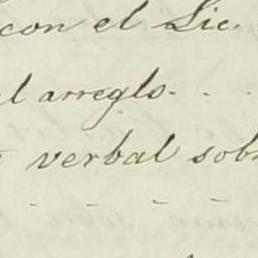 con el Lic.
el arreglo. . .
verbal sob